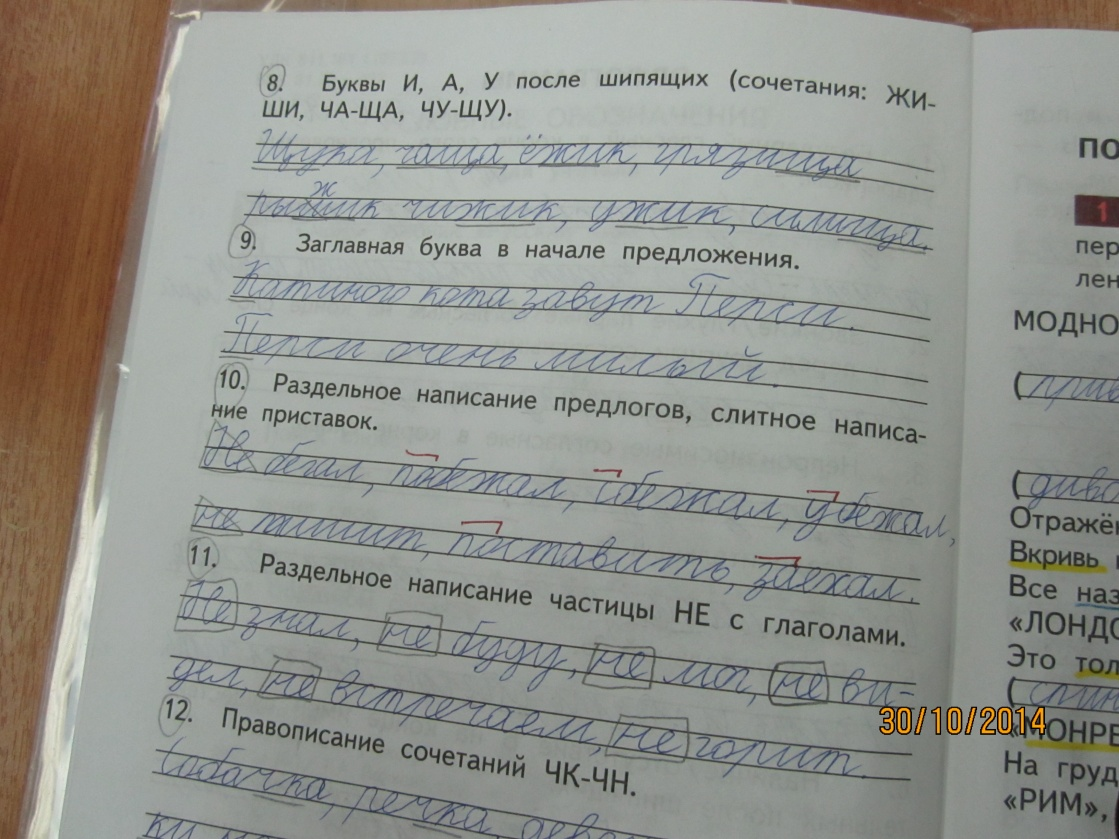 8. Буквы И, А, У после шипящих (сочетания: ЖИ-
ШИ, ЧА-ЩА, ЧУ-ЩУ).
Щука, чаща, ёжик, грязища
ж
рыжик чижик, ужик, силища.
9. Заглавная буква в начале предложения.
Катиного кота завут Перси.
Перси очень милый.
10. Раздельное написание предлогов, слитное написа-
ние приставок.
Не бегал, побежал, сбежал, убежал,
не пишит, поставить, заехал.
11. Раздельное написание частицы НЕ с глаголами.
Не знал, не буду, не мог, не ви-
дел, не встречаем, не горит.
12. Правописание сочетаний ЧК-ЧН.
Собачка, речка,
ПО
1
пер
лен
МОДНО
(
(
Отражён
Вкривь
Все наз
«ЛОНДО
Это тол
(
«МОНРЕ
На груд
«РИМ»,
30/10/2014